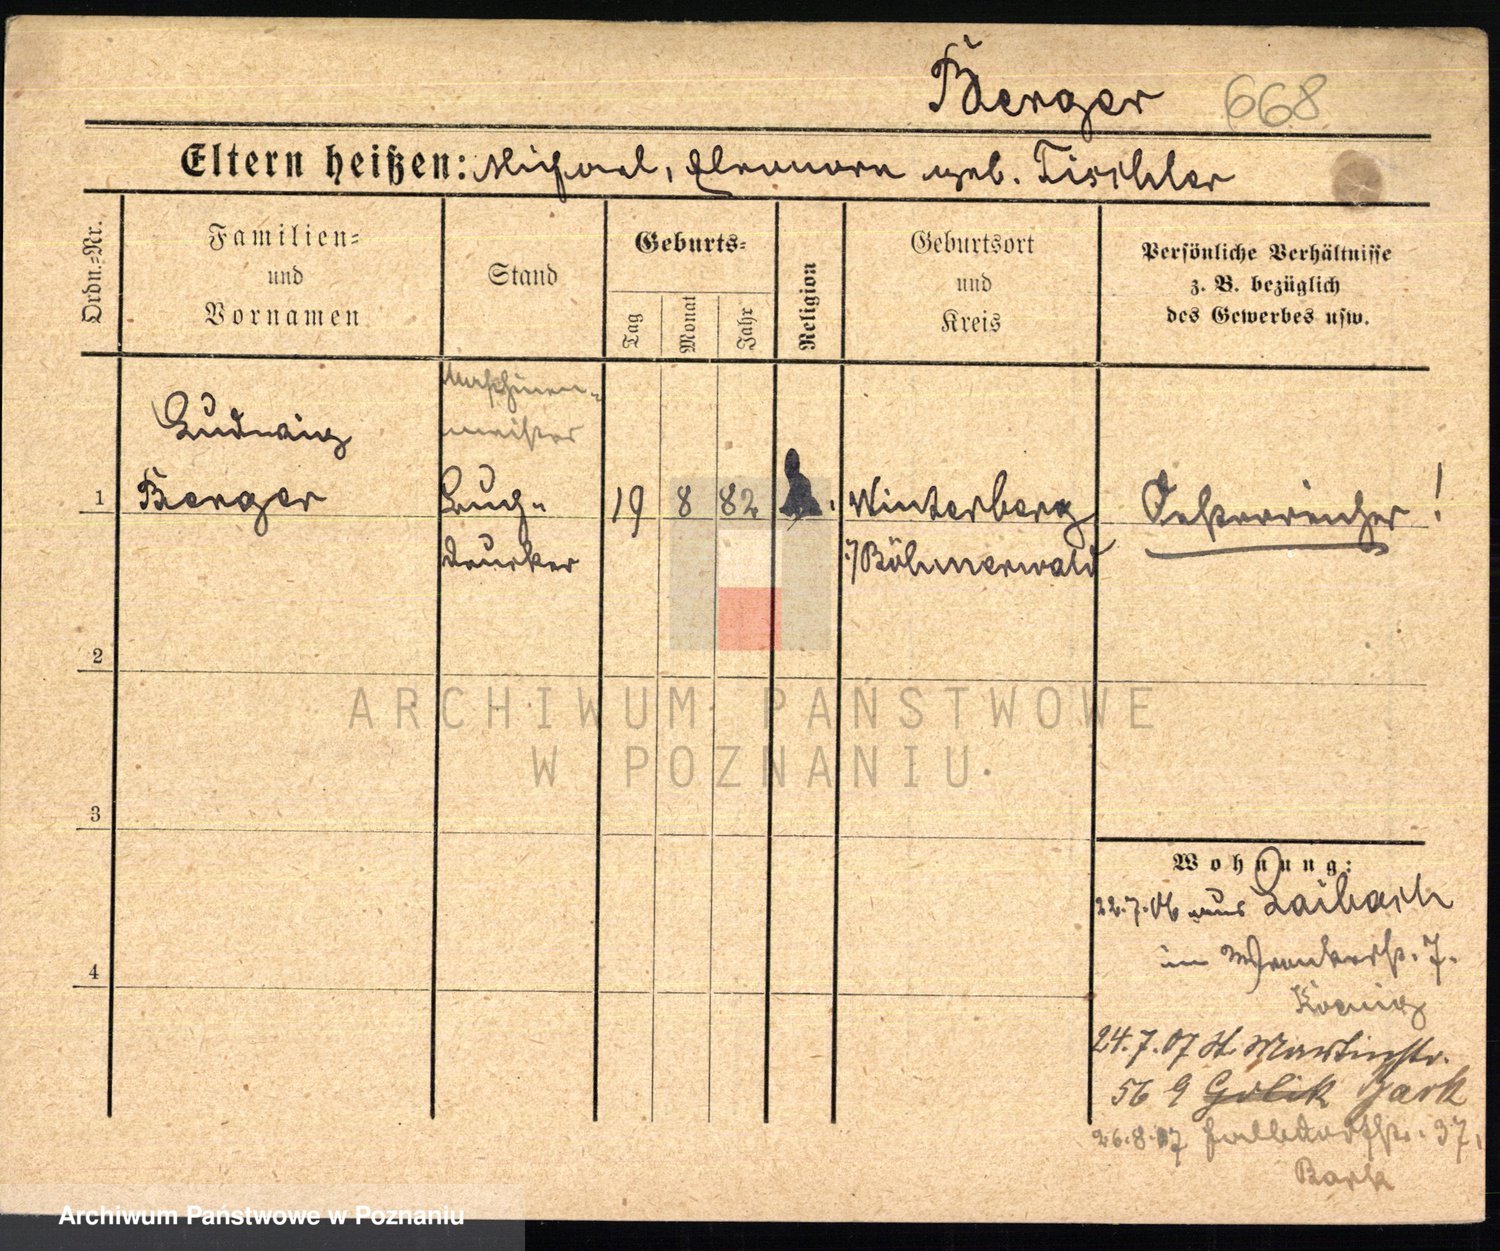 Berger 668
Eltern heißen: Michael, Eleonora geb. Tischler
Ordn.-Nr.
Familien-
und
Vornamen
Stand
Geburts-
Tag
Monat
Jahr
Religion
Geburtsort
und
Kreis
Persönliche Verhältnisse
z. B. bezüglich
des Gewerbes usw.
Maschinen-
meister
Ludwig
1 Berger
Buch-
drucker
19 8 82
Winterberg
Böhmerwald
Oesterreicher!
2
3
4
Wohnung:
22.7.06 aus Laibach
in Wronkerstr. 7.
Koenig
24.7.07 St Martinstr.
56 Golik
26.8.07 37,
ARCHIWUM PAŃSTWOWE
W POZNANIU
Archiwum Państwowe w Poznaniu